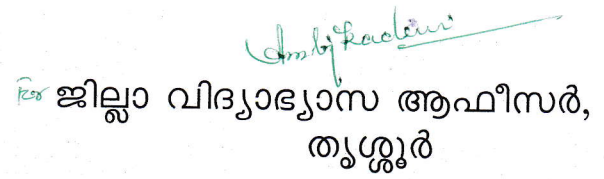 Ambikadevi
ജില്ലാ വിദ്യാഭ്യാസ ആഫീസർ,
തൃശ്ശൂർ